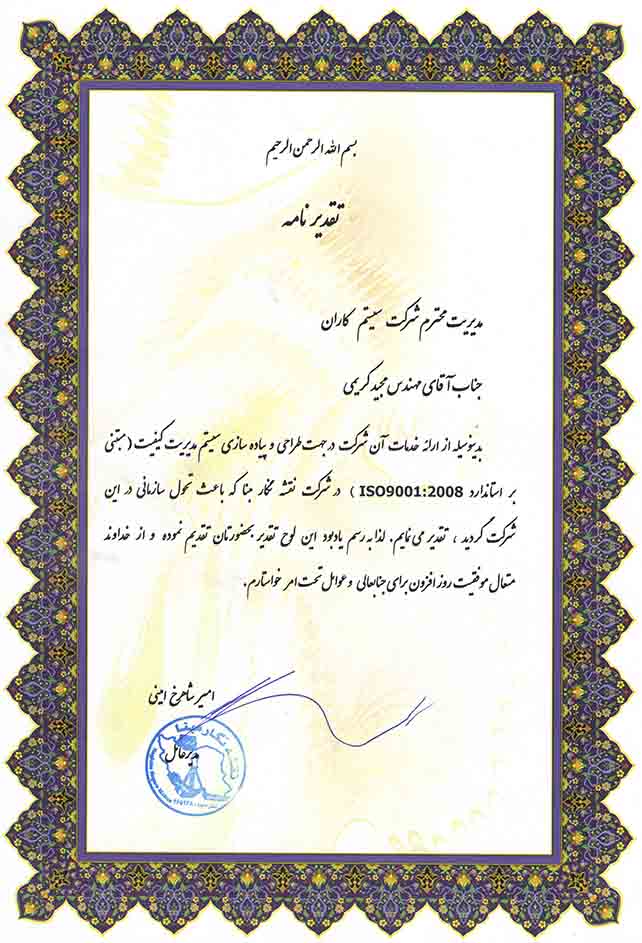 بسم الله الرحمن الرحیم
تقدیر نامه
مدیریت محترم شرکت سیستم کاران
جناب آقای مهندس مجید کریمی
بدینوسیله از ارائه خدمات آن شرکت در جهت طراحی و پیاده سازی سیستم مدیریت کیفیت (مبتنی
بر استاندارد ISO9001:2008 ) در شرکت نقشه نگار مبنا که باعث تحول سازمانی در این
شرکت گردید ، تقدیر می نمایم. لذا به رسم یادبود این لوح تقدیر بحضورتان تقدیم نموده و از خداوند
متعال موفقیت روز افزون برای جنابعالی و عوامل تحت امر خواستارم.
امیر شاهرخ امینی
مدیرعامل
نقشه نگار مبنا